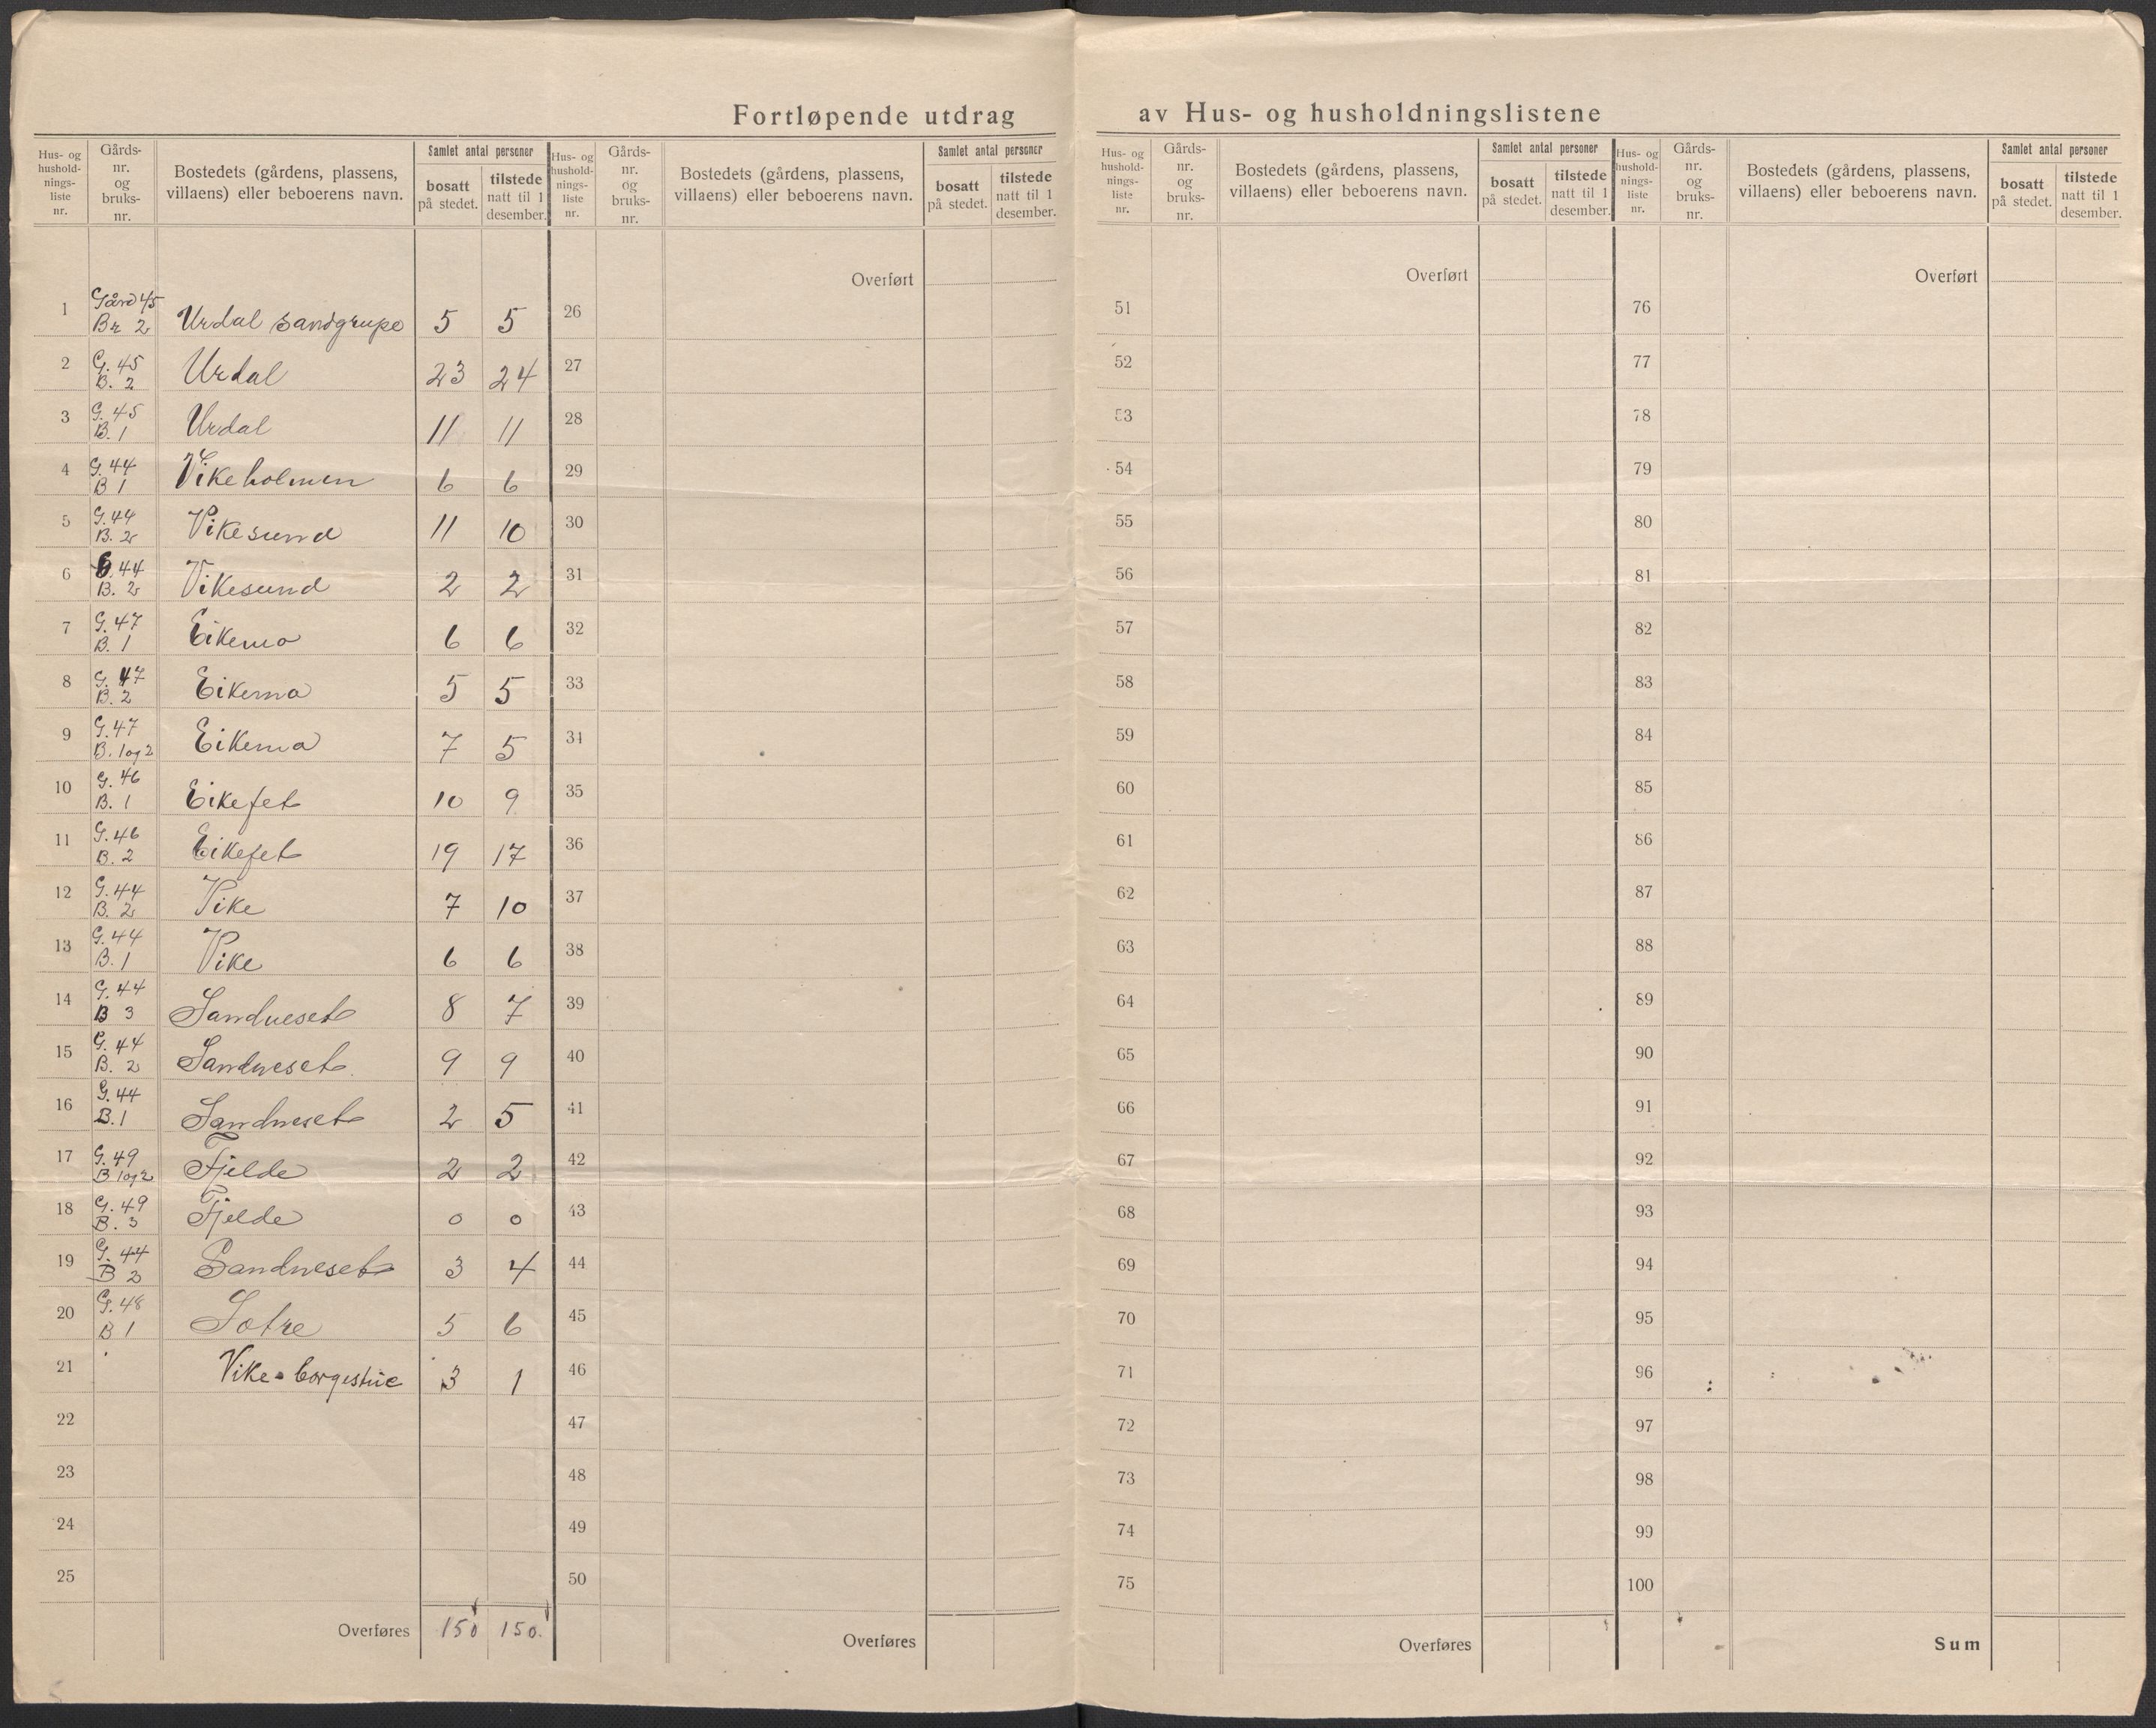 Fortløpende utdrag av Hus- og husholdningslistene
Hus- og husholdnings-liste nr. Gårds-nr. og bruks-nr. Bostedets (gårdens, plassens, villaens) eller beboerens navn. Samlet antal persener bosatt på stedet. tilstede natt til 1 desember.
Hus- og husholdnings-liste nr. Gårds-nr. og bruks-nr. Bostedets (gårdens, plassens, villaens) eller beboerens navn. Samlet antal persener bosatt på stedet. tilstede natt til 1 desember.
Hus- og husholdnings-liste nr. Gårds-nr. og bruks-nr. Bostedets (gårdens, plassens, villaens) eller beboerens navn. Samlet antal persener bosatt på stedet. tilstede natt til 1 desember.
Hus- og husholdnings-liste nr. Gårds-nr. og bruks-nr. Bostedets (gårdens, plassens, villaens) eller beboerens navn. Samlet antal persener bosatt på stedet. tilstede natt til 1 desember.
1 Gård 45 Br 2 Urdal Sandgrupe 5 5
2 G. 45 B. 2 Urdal 23 24
3 G. 45 B. 1 Urdal 11 11
4 G. 44 B 1 Vikeholmen 6 6
5 G. 44 B. 2 Vikesund 11 10
6 G. 44 B. 2 Vikesund 2 2
7 G. 47 B. 1 Eikemo 6 6
8 G. 47 B. 2 Eikemo 5 5
9 G. 47 B. 1 og 2 Eikemo 7 5
10 G. 46 B. 1 Eikefet 10 9
11 G. 46 B. 2 Eikefet 19 17
12 G. 44 B. 2 Vike 7 10
13 G. 44 B. 1 Vike 6 6
14 G. 44 B 3 Sandneset 8 7
15 G. 44 B. 2 Sandneset 9 9
16 G. 44 B. 1 Sandneset 2 5
17 G. 49 B 1 og 2 Fjelde 2 2
18 G. 49 B. 3 Fjelde 0 0
19 G. 44 B 2 Sandneset 3 4
20 G. 48 B 1 Sotre 5 6
21 Vike - borgestue 3 1
22
23
24
25
Overføres 150 150.
Overført
26
27
28
29
30
31
32
33
34
35
36
37
38
39
40
41
42
43
44
45
46
47
48
49
50
Overføres
Overført
51
52
53
54
55
56
57
58
59
60
61
62
63
64
65
66
67
68
69
70
71
72
73
74
75
Overføres
Overført
76
77
78
79
80
81
82
83
84
85
86
87
88
89
90
91
92
93
94
95
96
97
98
99
100
Sum